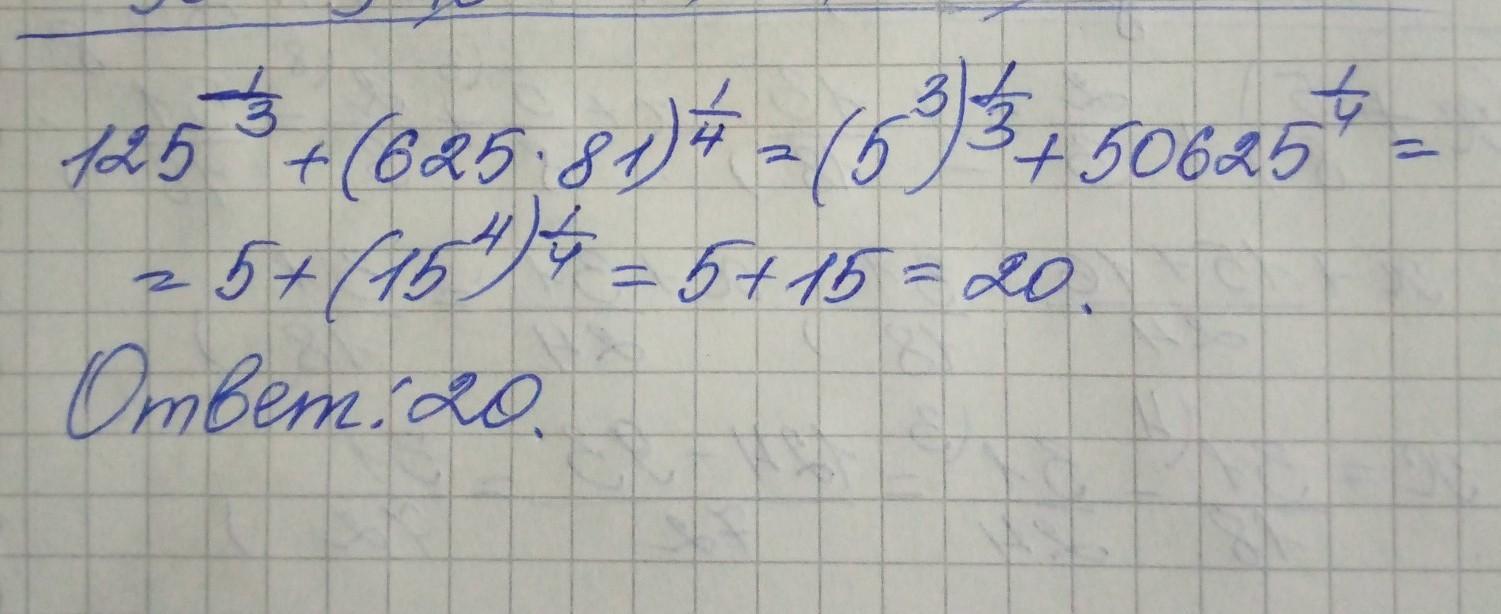 125^(1/3) + (625 · 81)^(1/4) = (5^3)^(1/3) + 50625^(1/4) =
= 5 + (15^4)^(1/4) = 5 + 15 = 20.
Ответ: 20.